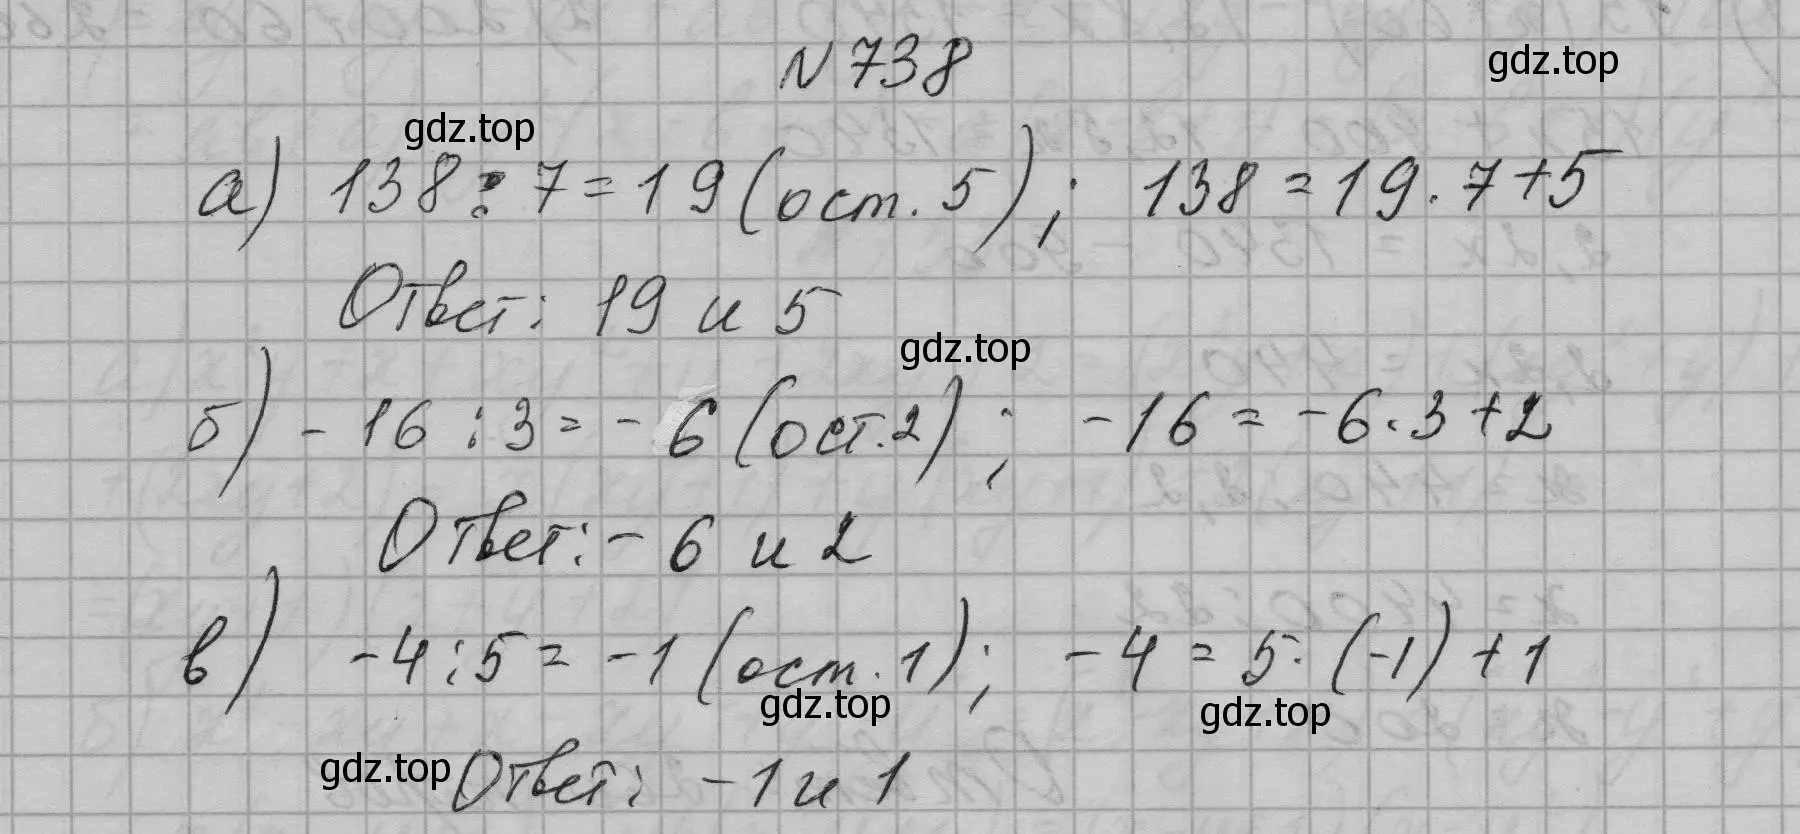 N 738
gdz.top
gdz.top
а) 138 : 7 = 19 (ост. 5); 138 = 19 · 7 + 5
Ответ: 19 и 5
gdz.top
б) - 16 : 3 = - 6 (ост. 2); - 16 = - 6 · 3 + 2
Ответ: - 6 и 2
в) - 4 : 5 = - 1 (ост. 1); - 4 = 5 · (-1) + 1
gdz.top
gdz.top
gdz.top
Ответ: - 1 и 1